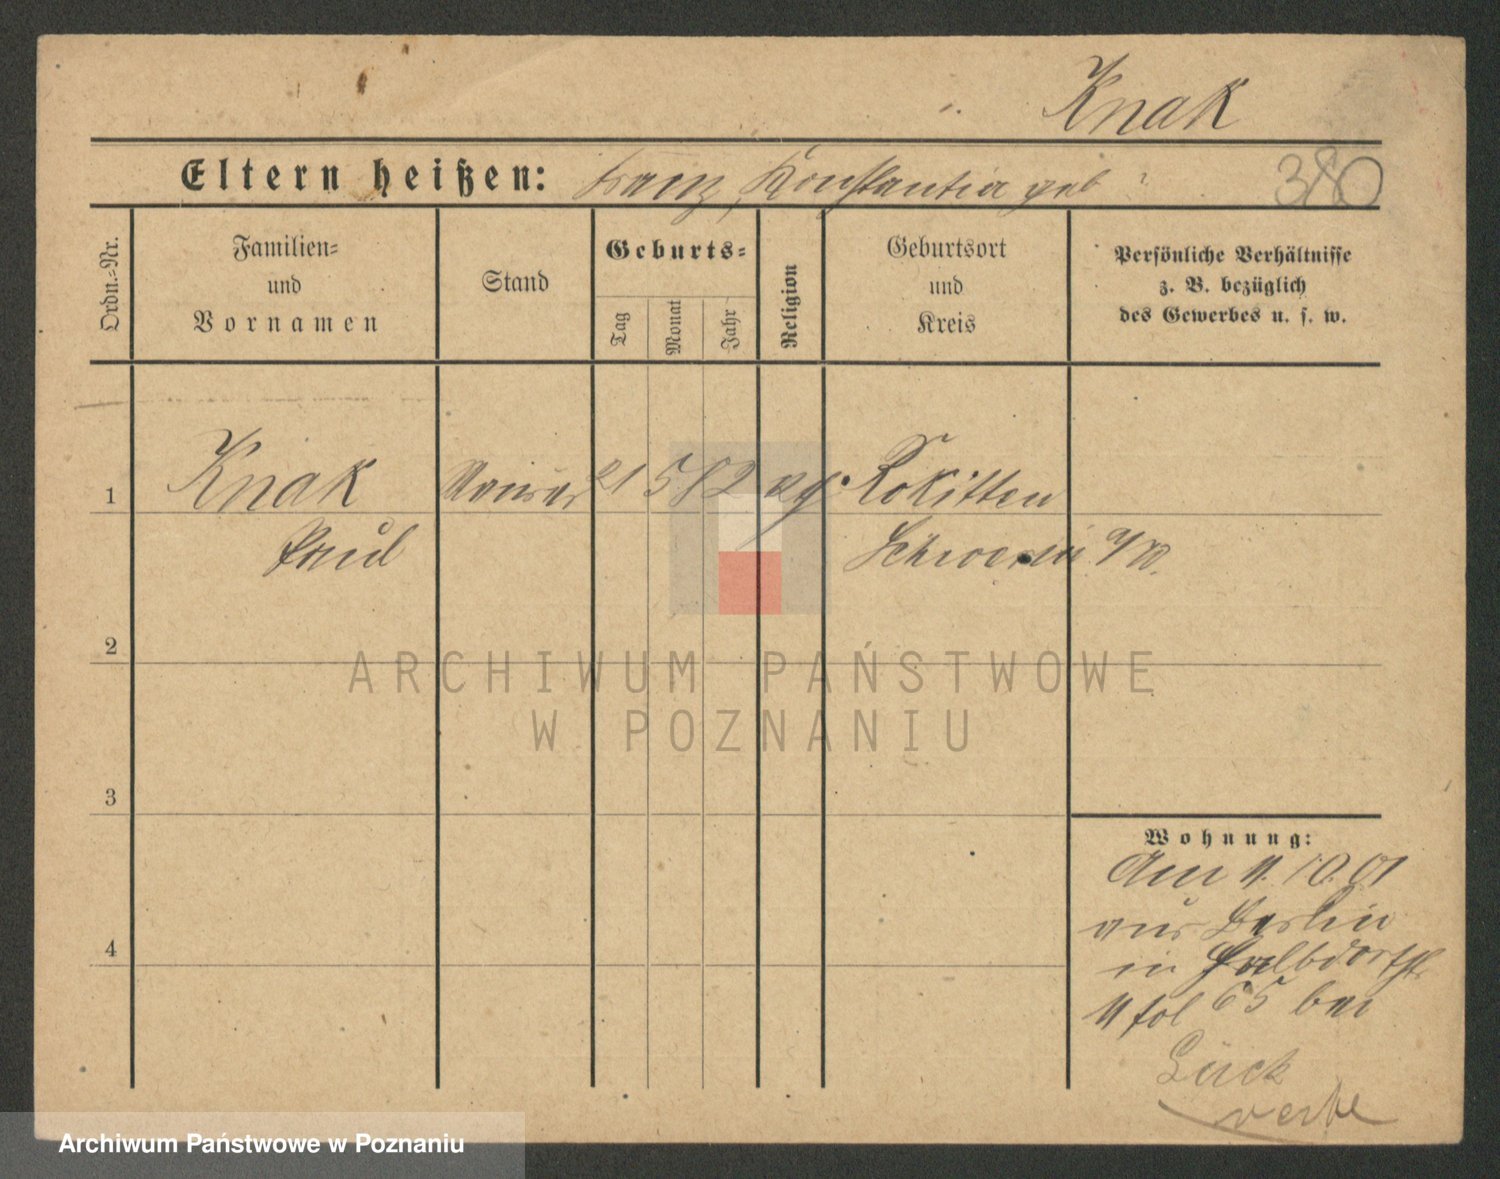 Knak
Eltern heißen: Franz, Konstantia geb ?
380
Ordn.-Nr.
Familien-
und
Vornamen
Stand
Geburts-
Tag
Monat
Jahr
Religion
Geburtsort
und
Kreis
Persönliche Verhältnisse
z. B. bezüglich
des Gewerbes u. s. w.
1 Knak 21 5 82 Rokitten
Paul Schwerin a/W.
2
3
4
Wohnung:
Am 11.10.01
aus Berlin
in Halbdorfstr
fol 65 bei
Lück
ARCHIWUM PAŃSTWOWE
W POZNANIU
Archiwum Państwowe w Poznaniu